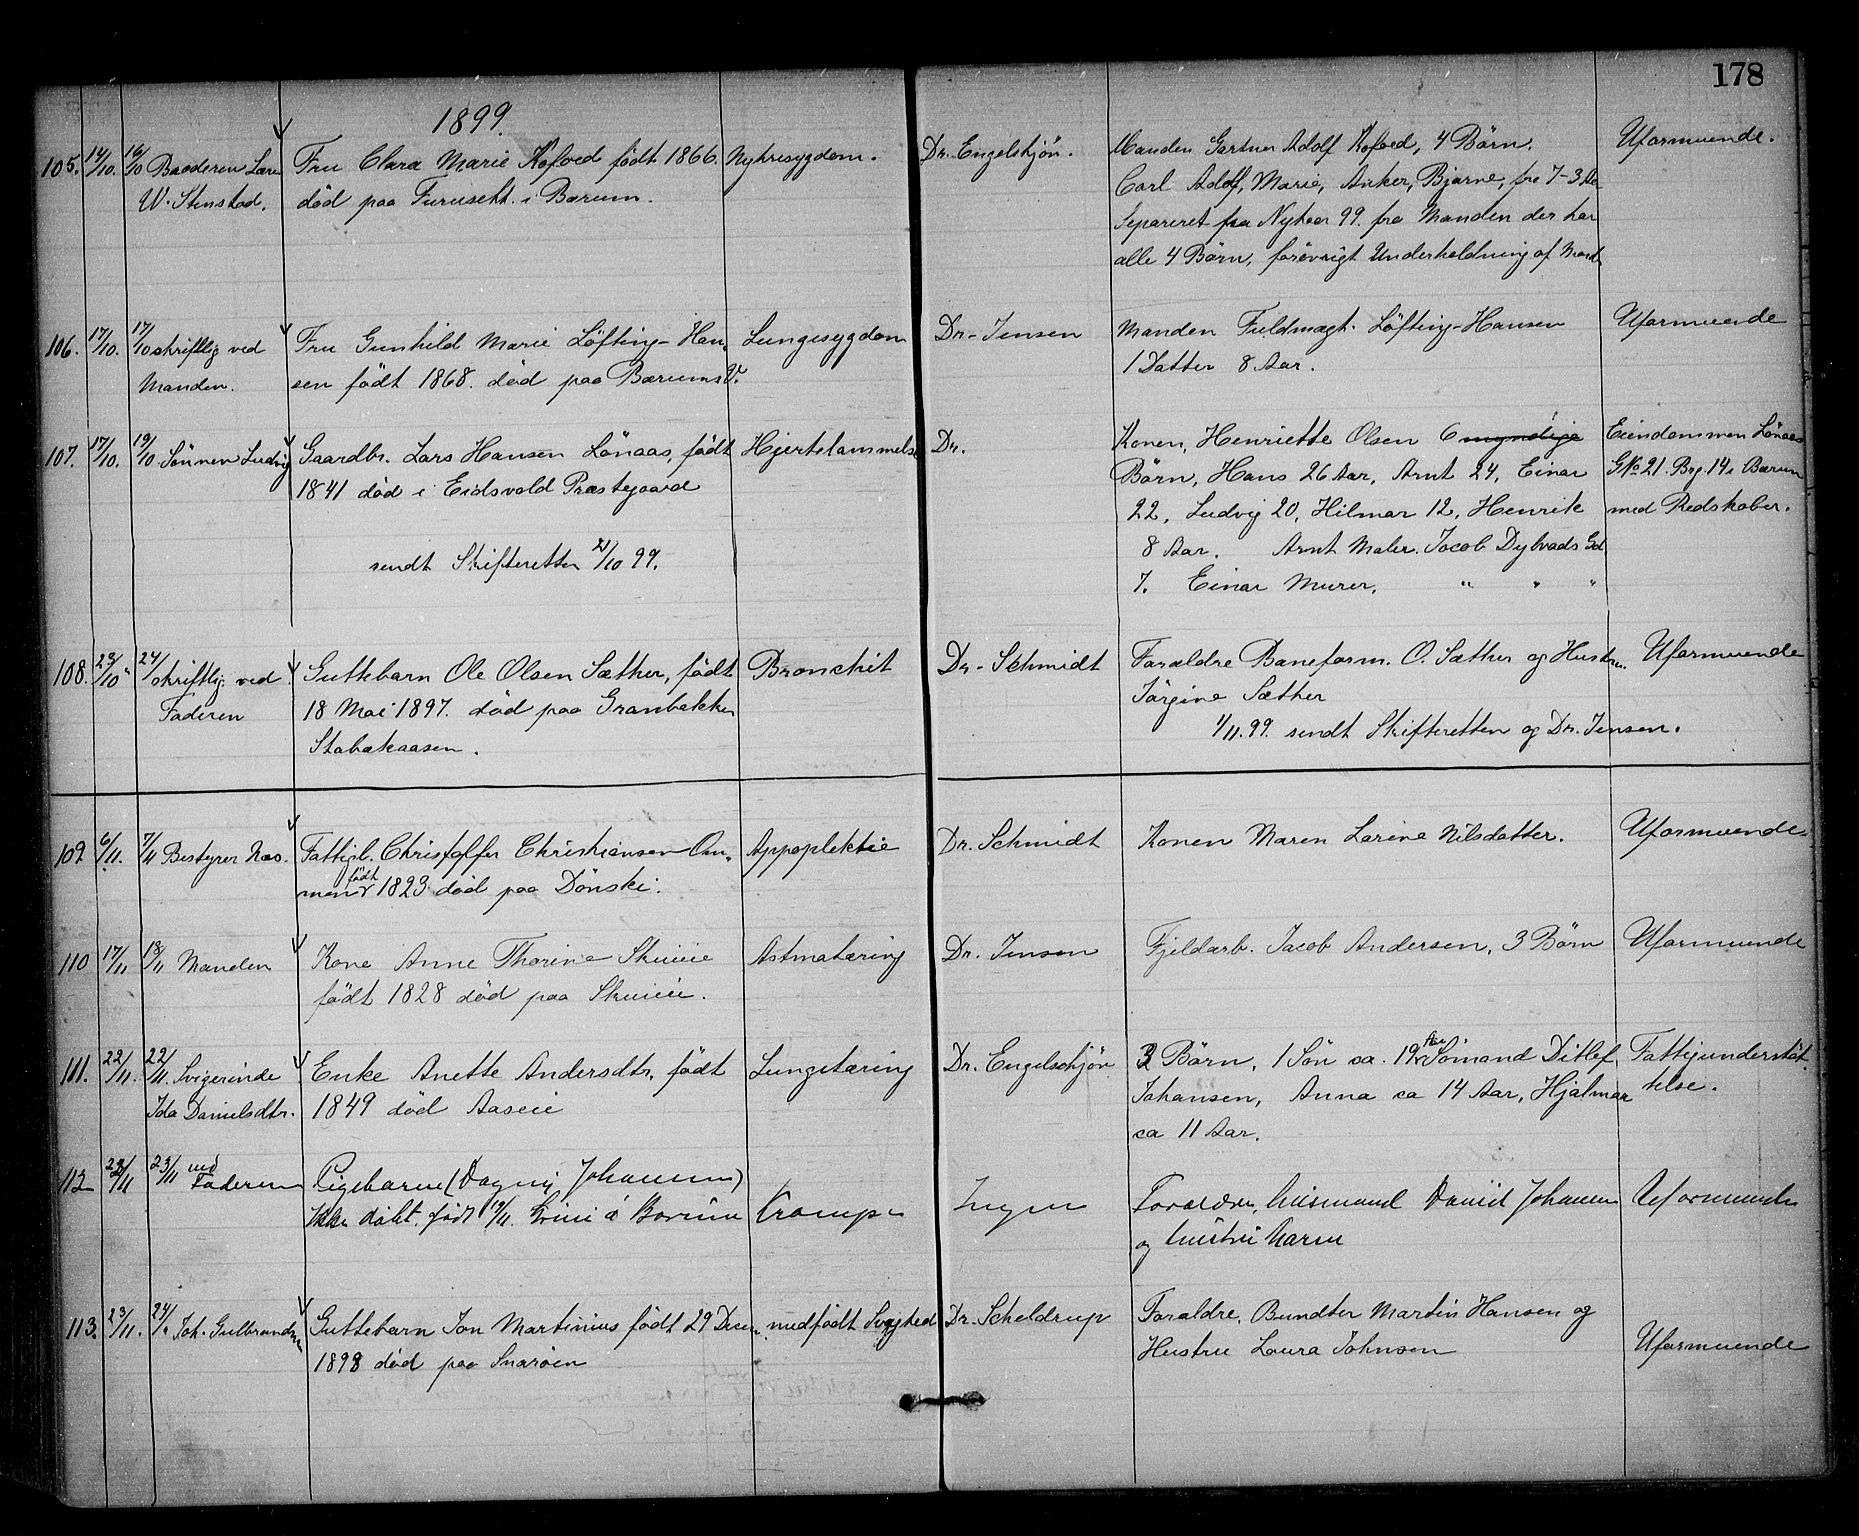 178
1899.
105. 14/10. 16/10 Broderen Lærer Fru Clara Marie Kofoed født 1866. Nyresygdom. Dr. Engelskjön. Manden Gartner Adolf Kofoed, 4 Börn. Uformuende.
W. Stenstad. död paa Furusett i Bærum. Carl Adolf, Marie, Anker, Bjarne, fra 7-3 Aar
Separeret fra Nytaar 99. fra Manden der har
alle 4 Börn, forövrigt Underholdning af Mand
106. 17/10. 17/10 skriftlig ved Fru Gunhild Marie Löfting-Han- Lungesygdom Dr. Jensen Manden Fuldmægt. Löfting-Hansen Uformuende
Manden. sen födt 1868. död paa Bærums V. 1 Datter 8 Aar.
107. 17/10. 19/10 Sönnen Ludvig Gaardbr. Lars Hansen Lönaas, født Hjertelammelse Dr. Konen, Henriette Olsen 6 myndige Eiendommen Lönaas
1841 död i Eidsvold Præstegaard Börn, Hans 26 Aar, Arnt 24, Einar GNo 21. Brg. 14 i Bærum
22, Ludvig 20, Hilmar 12, Henrik med Redskaber.
sendt Skifteretten 21/10 99. 8 Aar. Arnt Maler. Jacob Dybvads Gd.
7. Einar Murer, " " "
108. 23/10 24/" skriftlig ved Guttebarn Ole Olsen Sæther, født Bronchit Dr. Schmidt Forældre Baneform. O. Sæther og Hustru. Uformuende
Faderen 18 Mai 1897. död paa Granbakken Jörgine Sæther
Stabækaasen. 1/11.99. sendt Skifteretten og Dr. Jensen.
109 6/11. 7/11 Bestyrer Næs. Fattigl. Christoffer Christiansen Om- Appoplektie Dr. Schmidt Konen Maren Larine Nilsdatter. Uformuende
men födt 1823 död paa Dönski.
110 17/11 18/11 Manden Kone Anne Thorine Skuiie Astmatæring Dr. Jensen Fjeldarb. Jacob Andersen, 3 Börn Uformuende
födt 1828 död paa Skuiie.
111. 22/11. 22/11. Svigerinde Enke Anette Andersdtr. født Lungetæring Dr. Engelschjön 3 Börn, 1 Sön ca. 19 Aar Sömand Ditlef Fattigunderstöt-
Ida Danielsdtr. 1849 död Aaseie Johansen, Anna ca 14 Aar, Hjalmar telse.
ca 11 Aar.
112 22/11 23/11 ved Faderen Pigebarn (Dagny Johansen) Krampe Ingen Forældre, Husmand David Johansen Uformuende
Ikke döbt. født 19/11. Grini i Bærum og hustru Karen
113. 23/11. 24/" Joh. Gulbrandsen Guttebarn Jon Martinius født 29 Decem. medfödt Svaghed Dr. Scheldrup Forældre, Bundter Martin Hansen og
1898 död paa Snaröen Hustru Laura Johnsen Uformuende